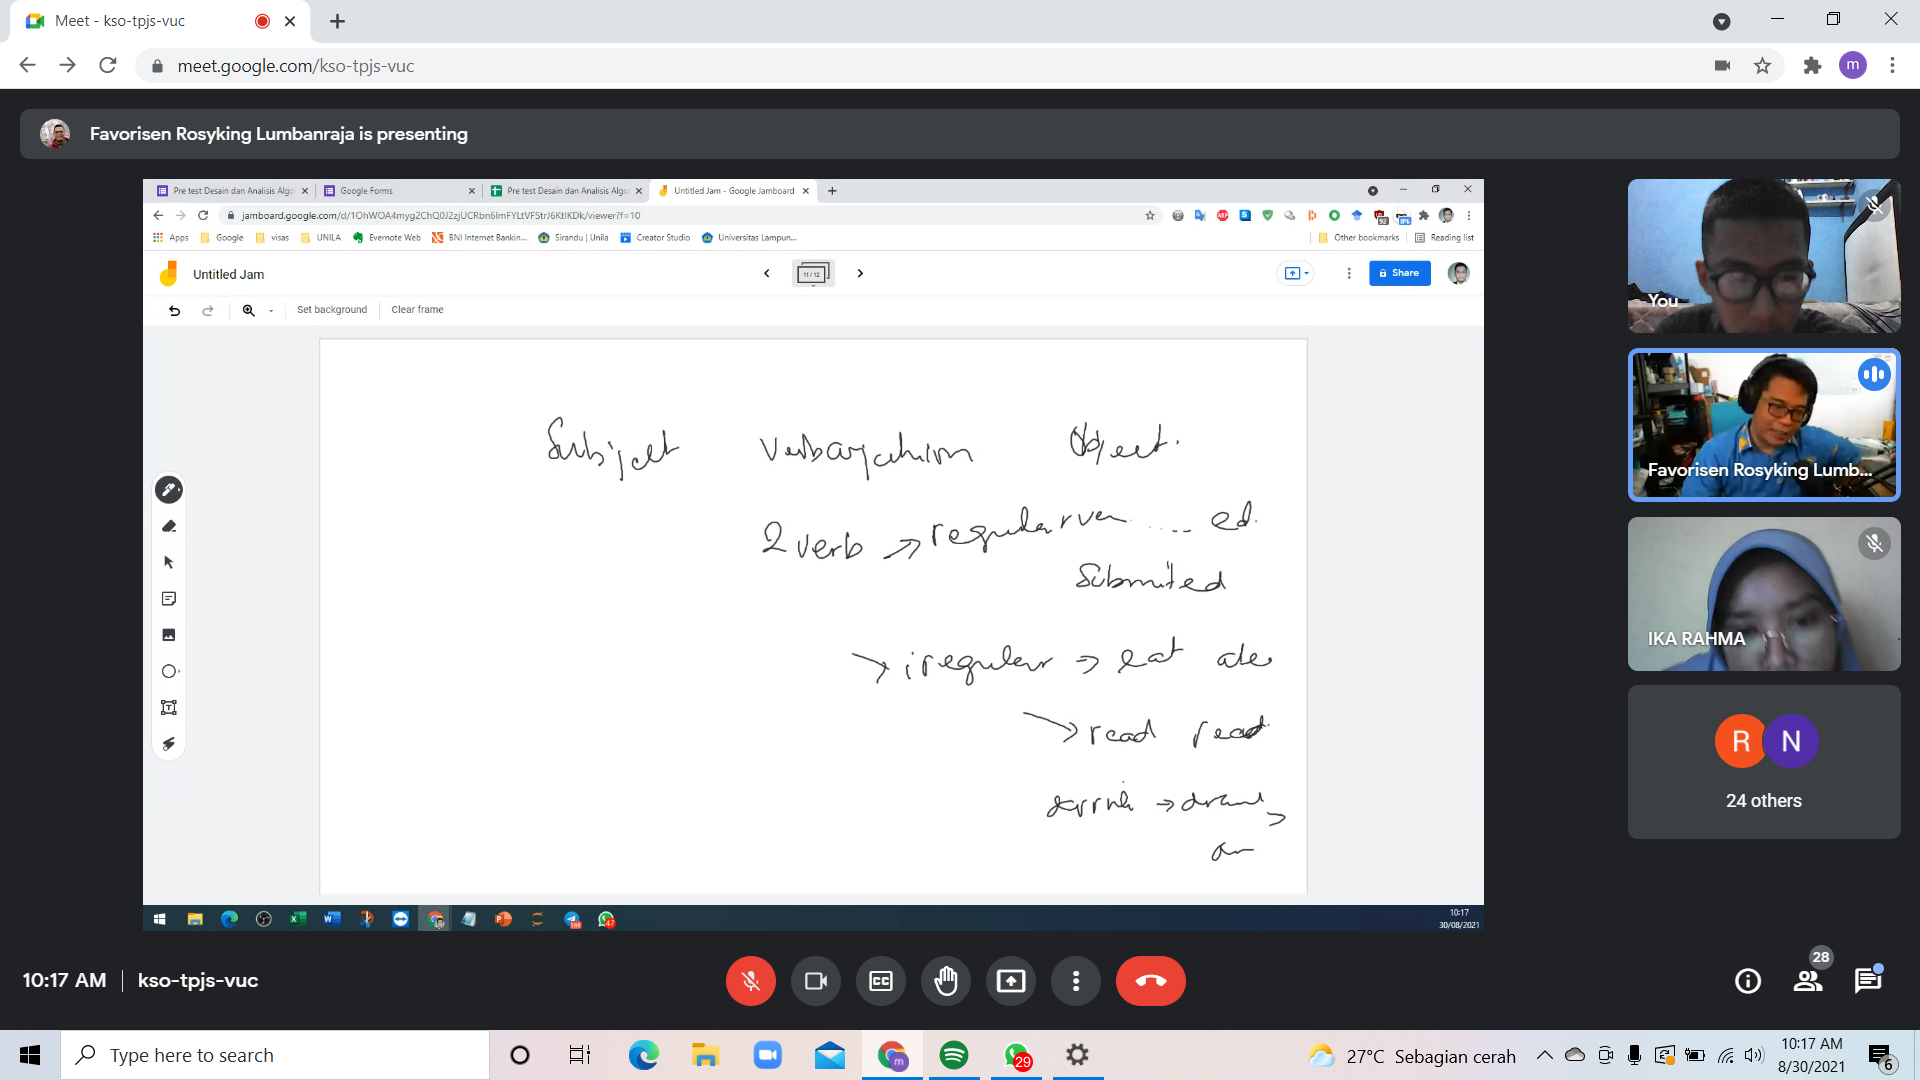 Meet - kso-tpjs-vuc
meet.google.com/kso-tpjs-vuc
m
Favorisen Rosyking Lumbanraja is presenting
Pre test Desain dan Analisis Algo
Google Forms
Pre test Desain dan Analisis Algo
Untitled Jam - Google Jamboard
jamboard.google.com/d/1OhWOA4myg2ChQ0J2zjUCRbn6lmFYLtVFStrJ6KtIKDk/viewer?f=10
Apps Google visas UNILA Evernote Web BNI Internet Bankin... Sirandu | Unila Creator Studio Universitas Lampun... Other bookmarks Reading list
Untitled Jam
11 / 12
Share
Set background Clear frame
Subject Object.
2 verb → regular ver ..... ed.
Submited
→ iregular → eat ate
→ read read
You
Favorisen Rosyking Lumb...
IKA RAHMA
R N
24 others
10:17
30/08/2021
10:17 AM | kso-tpjs-vuc
28
Type here to search
m
29
27°C Sebagian cerah
10:17 AM
8/30/2021
6